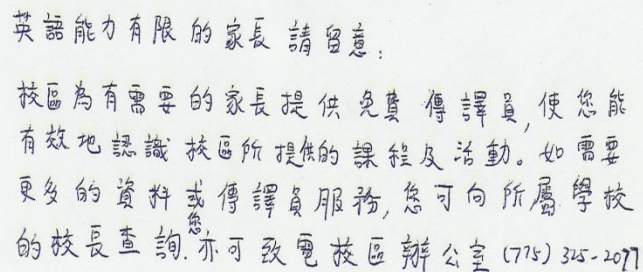 英語能力有限的家長請留意：
校區為有需要的家長提供免費傳譯員,使您能
有效地認識校區所提供的課程及活動。如需要
更多的資料或傳譯員服務,您可向所屬學校
的校長查詢.您亦可致電校區辦公室(775)325-2077